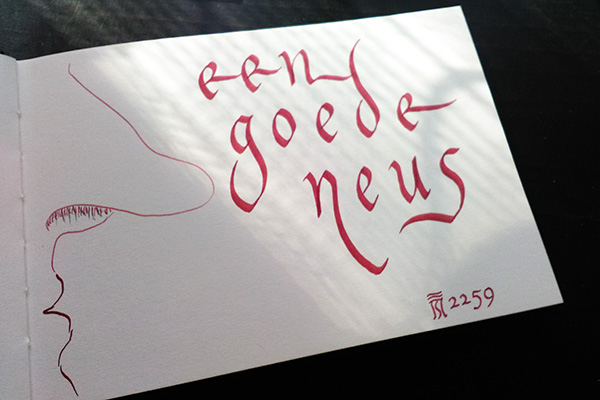 een
goede
neus
2259